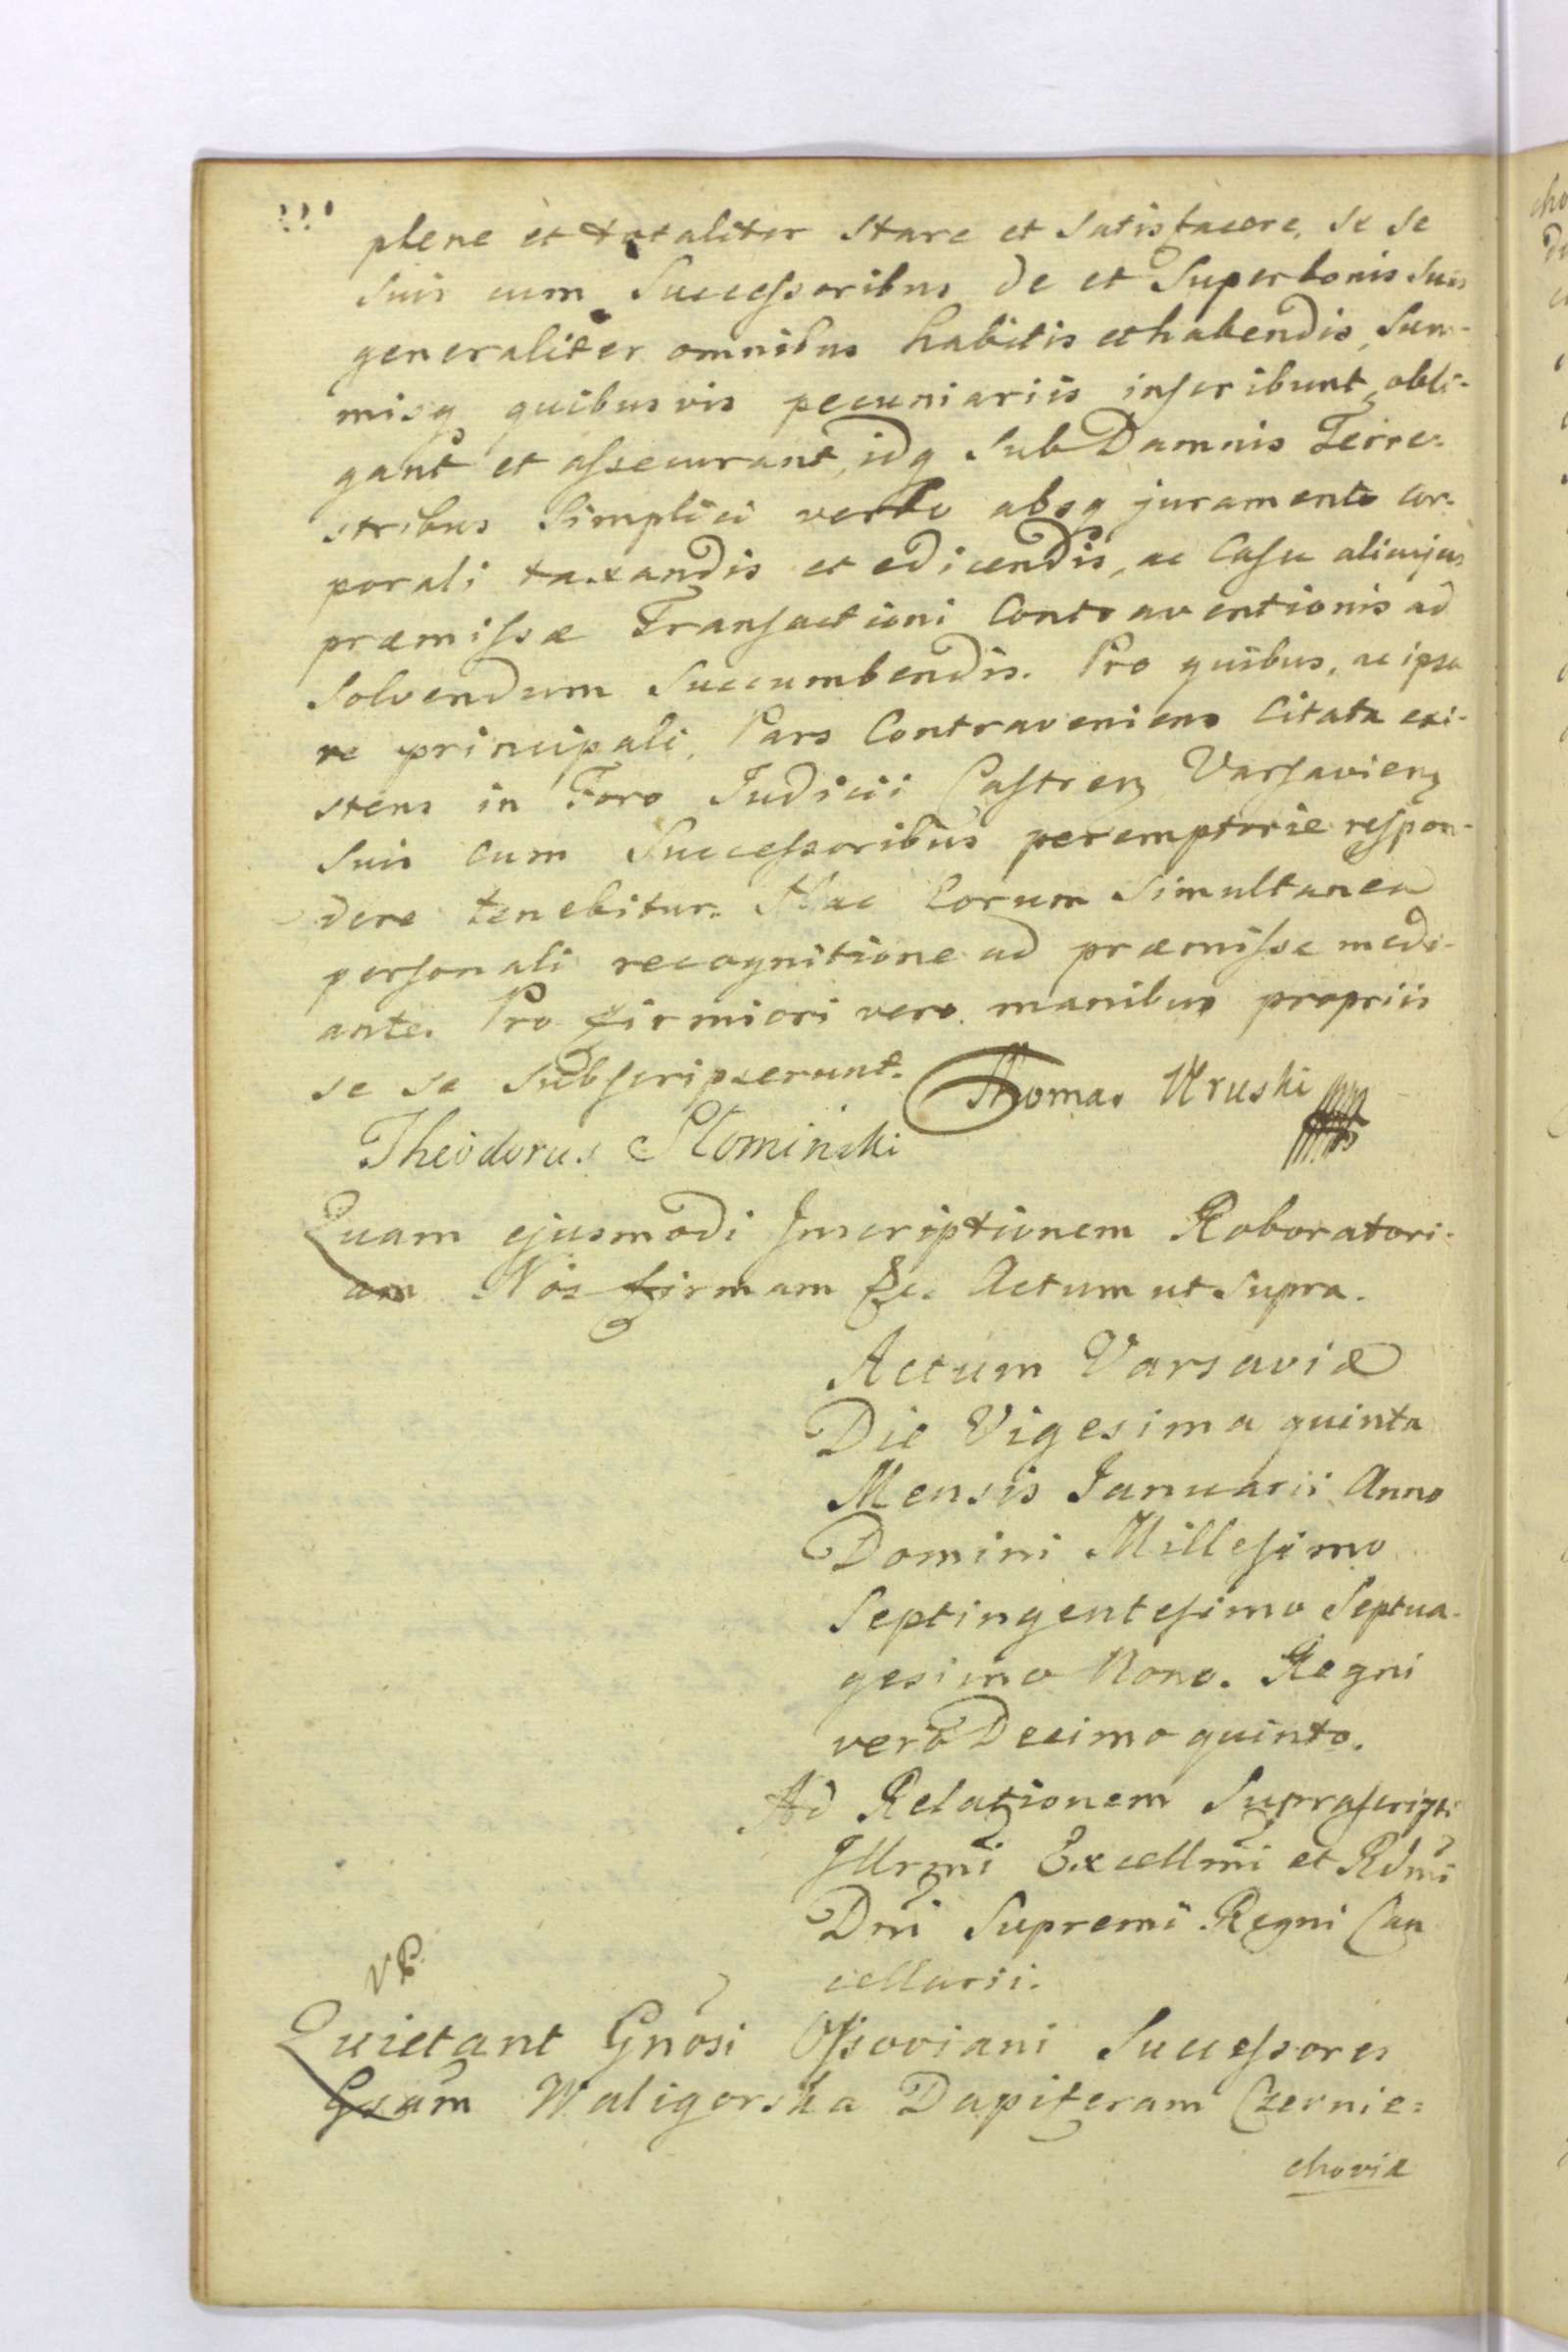 plene et totaliter stare et satisfacere, se se
suis cum Successoribus de et Super bonis suis
generaliter omnibus habitis et habendis, Sum-
misq quibusvis pecuniariis inscribunt, obli-
gant et assecurant, idq Sub Damnis Terre-
stribus Simplici verbo absq juramento cor-
porali taxandis et edicendis, ac Casu alicujus
præmissæ Transactioni Contraventionis ad
solvendum Succumbendis. Pro quibus, ac ipsa
re principali, Pars Contraveniens Citata exi-
stens in Foro Judicii Castren Varsavien
suis cum Successoribus peremptorie respon-
dere tenebitur. Hac Eorum Simultanea
personali recognitione ad præmissa medi-
ante. Pro firmiori vero manibus propriis
se se subscripserunt. Thomas Uruski
Theodorus Slominski
Quam ejusmodi Inscriptionem Roboratori-
am Nos firmam &c. Actum ut Supra.
Actum Varsaviæ
Die Vigesima quinta
Mensis Januarii Anno
Domini Millesimo
Septingentesimo Septua-
gesimo Nono. Regni
vero Decimo quinto.
Ad Relationem Suprascripti
Illrmi Excellmi et Rdmi
Dni Supremi Regni Can
cellarii.
VR
Quietant Gnosi Ossoviani Successores
Gsam Waligorska Dapiferam Czernie=
choviæ